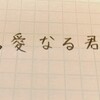 愛なる君